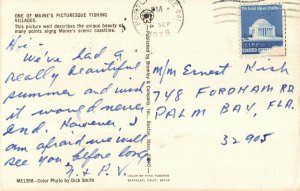 ONE OF MAINE'S PICTURESQUE FISHING
VILLAGES.
This picture well describes the unique beauty at
many points along Maine's scenic coastline.
Hi -
We've had a
really beautiful
summer and wish
it would never
end. However, I
am afraid we will
see you before long.
ME1358-Color Photo by Dick Smith
PM
SEP
1978
M/M Ernest Nish
748 FORDHAM RD
PALM BAY, FLA.
32905
COLOR BY MIKE ROBERTS
BERKELEY, CALIF. 94710